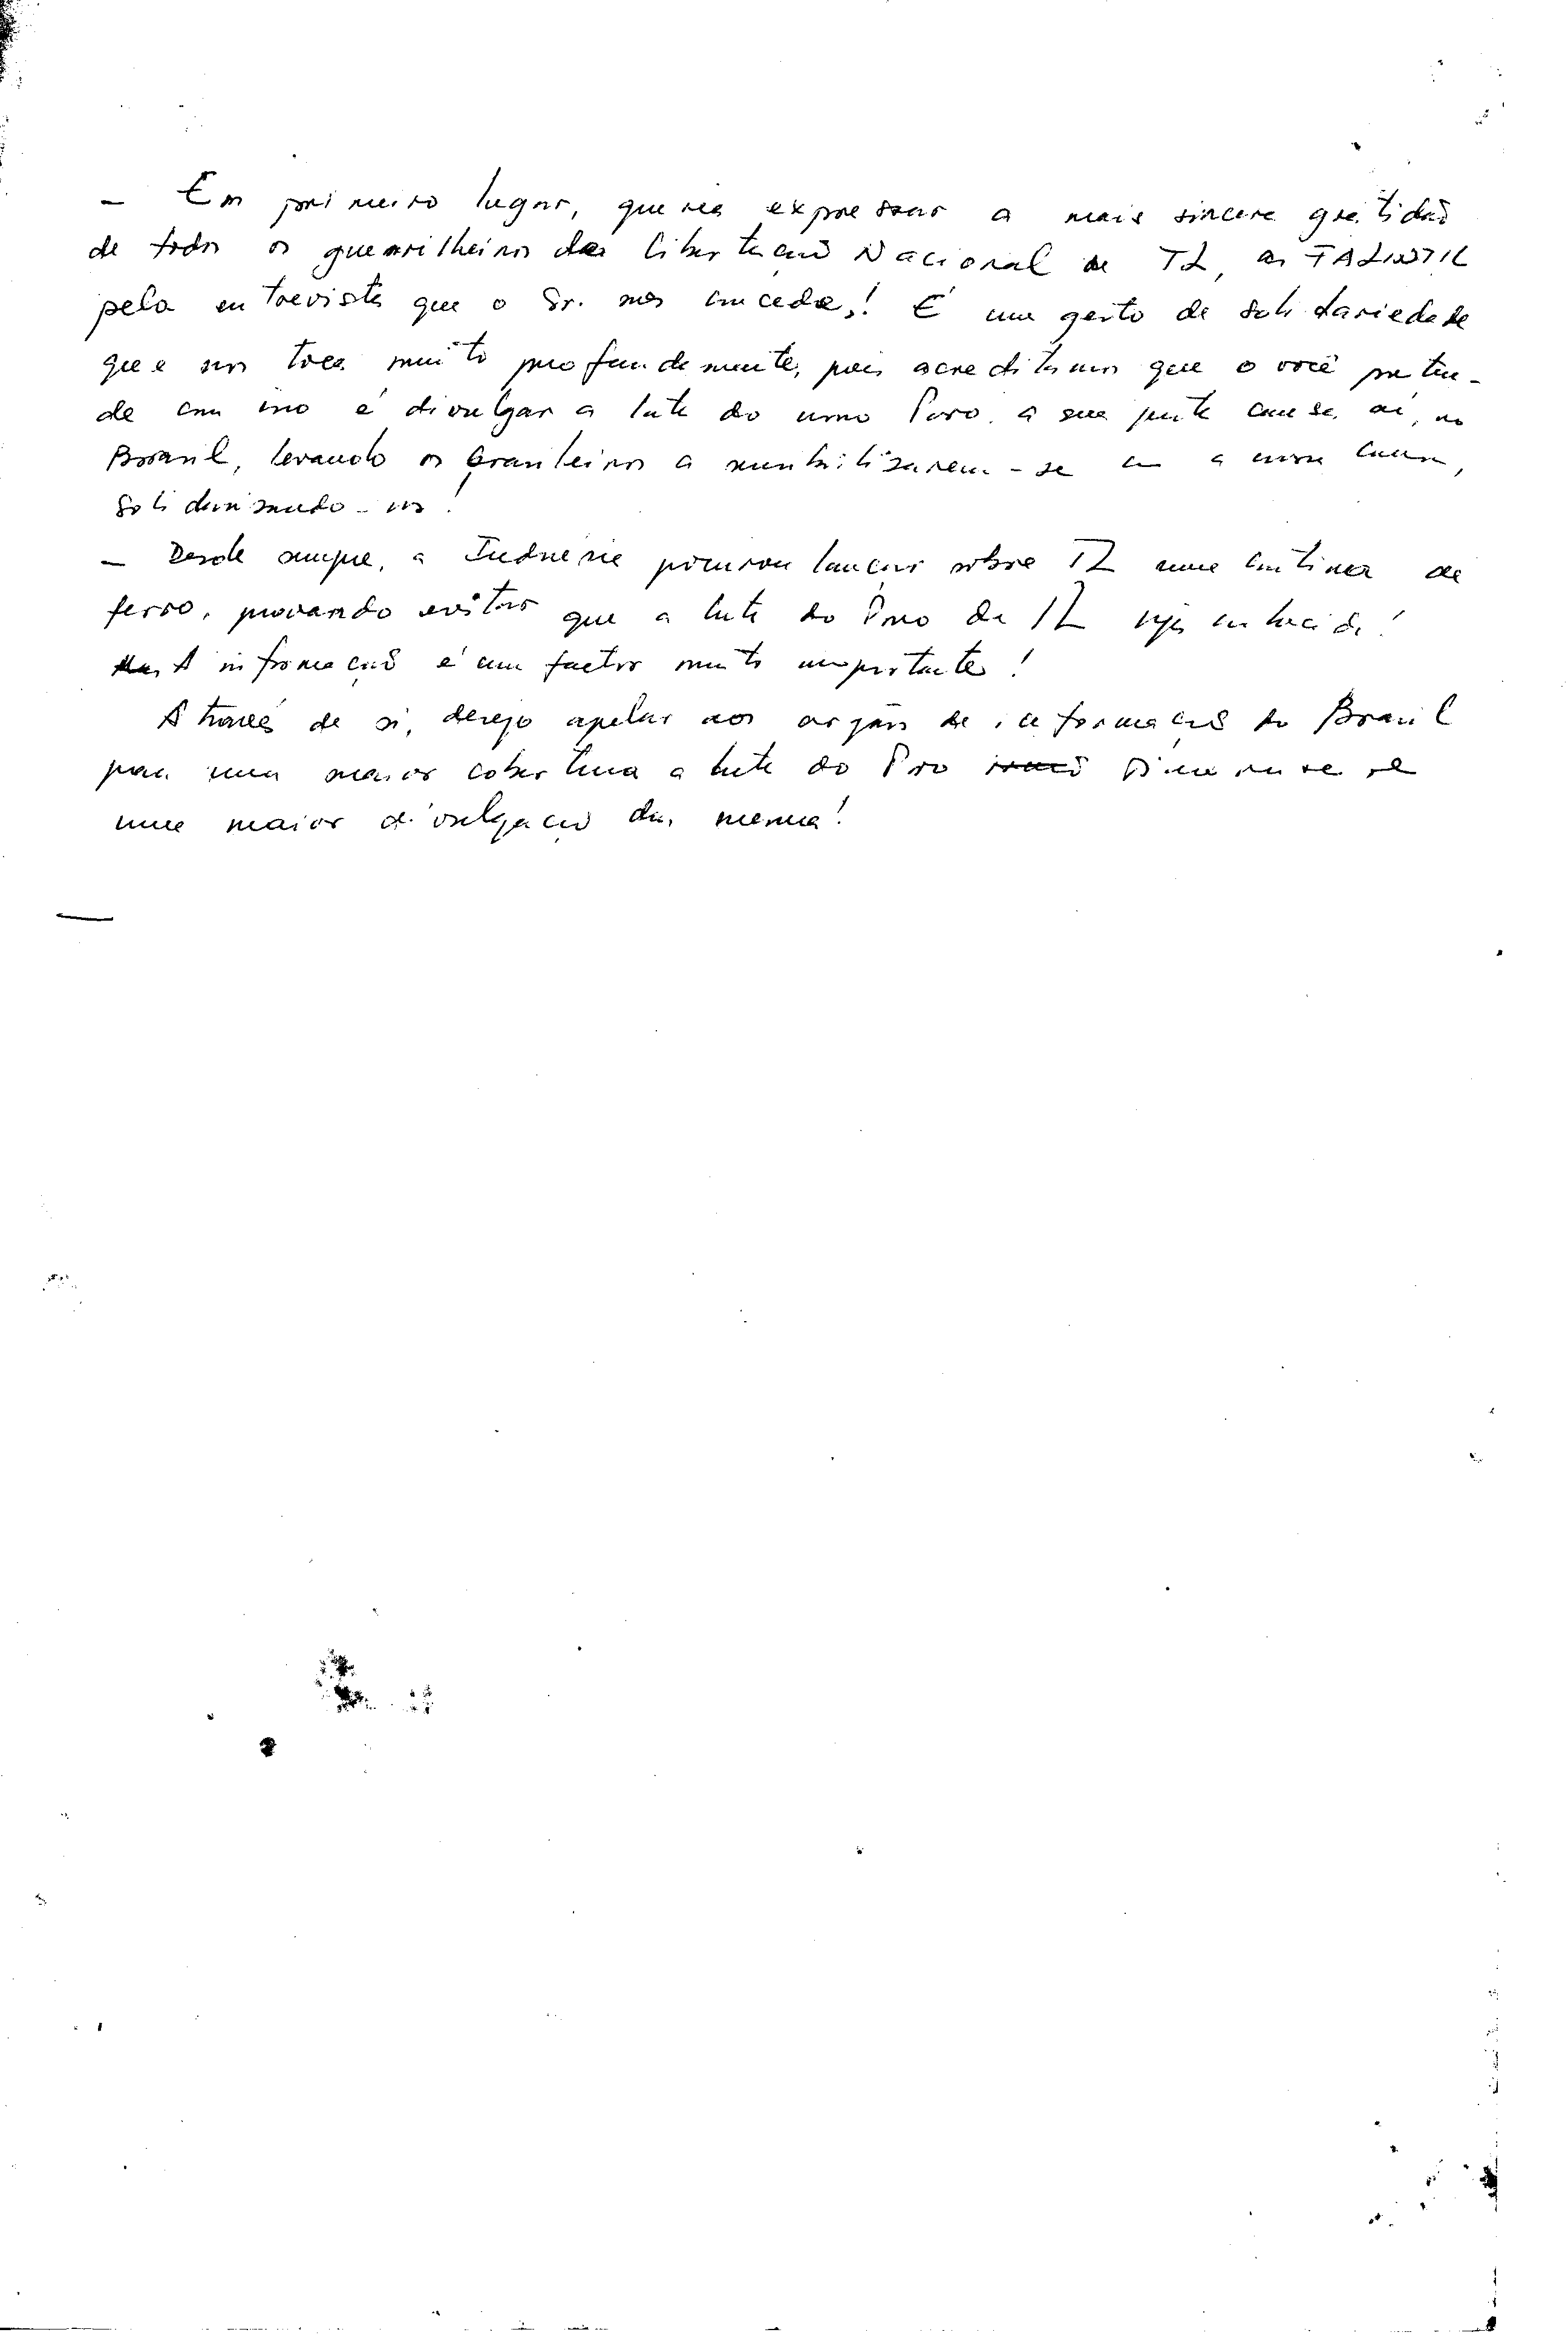 - Em primeiro lugar, queria expressar a mais sincera gratidão
de todos os guerrilheiros da Libertação Nacional de TL, as FALINTIL
pela entrevista que o Sr. nos concede! É um gesto de solidariedade
que nos toca muito profundamente, pois acreditamos que o você preten-
de com isso é divulgar a luta do nosso Povo, a sua justa causa, aí, no
Brasil, levando os brasileiros a sensibilizarem-se com a nossa causa,
solidarizando-nos!
- Desde sempre, a Indonésia procurou lançar sobre TL uma cortina de
ferro, procurando evitar que a luta do Povo de TL seja conhecida!
A informação é um factor muito importante!
Através de si, desejo apelar aos orgãos de informação do Brasil
para uma maior cobertura a luta do Povo Timorense e
uma maior divulgação da mesma!